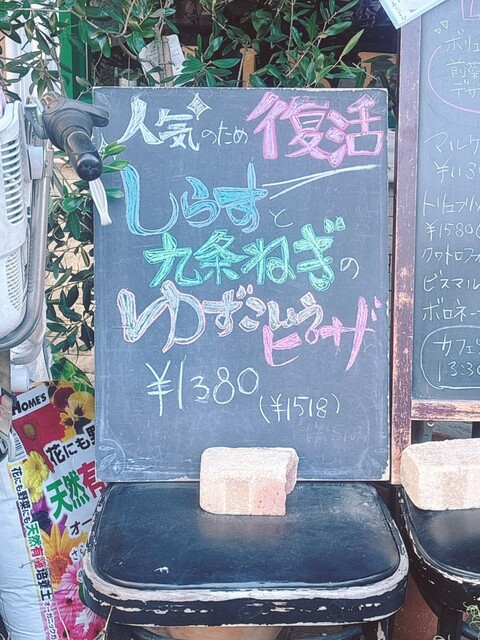 人気のため復活
しらすと
九条ねぎの
ゆずこしょう
ピザ
¥1380
(¥1518)
マルゲ
トリュフ
¥1580
クワトロフォ
ビスマル
ボロネー
カフェ
13:30
HOME'S
花にも野
天然有
花にも野菜にも天然有機培養土